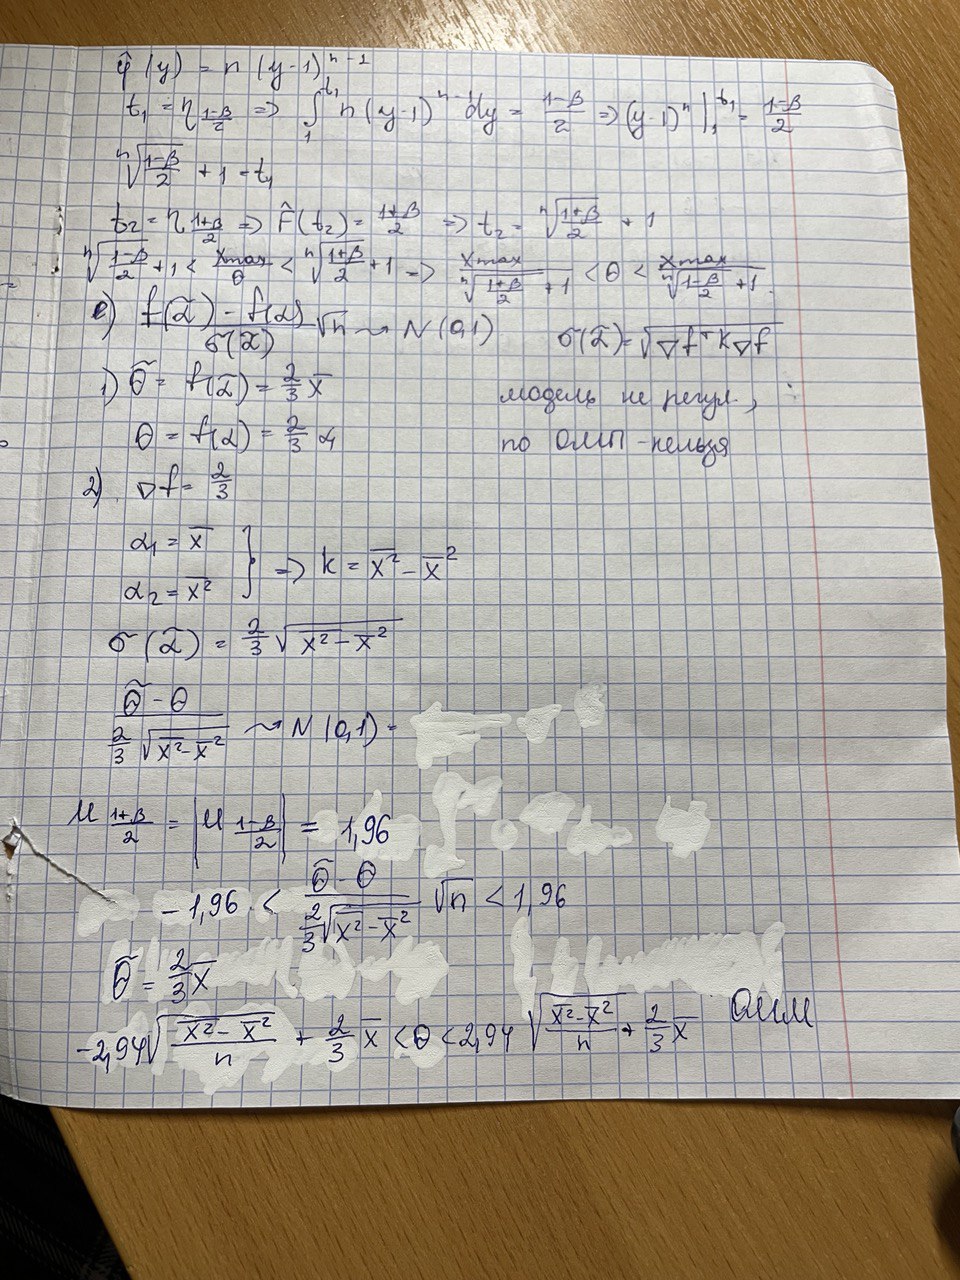 φ̂(y) = n (y-1)^{n-1}
t₁ = η_{\frac{1-β}{2}} => ∫_1^{t₁} n (y-1)^{n-1} dy = \frac{1-β}{2} => (y-1)^n |_1^{t₁} = \frac{1-β}{2}
\sqrt[n]{\frac{1-β}{2}} + 1 = t₁
t₂ = η_{\frac{1+β}{2}} => F̂(t₂) = \frac{1+β}{2} => t₂ = \sqrt[n]{\frac{1+β}{2}} + 1
\sqrt[n]{\frac{1-β}{2}} + 1 < \frac{x_{max}}{θ} < \sqrt[n]{\frac{1+β}{2}} + 1 => \frac{x_{max}}{\sqrt[n]{\frac{1+β}{2}} + 1} < θ < \frac{x_{max}}{\sqrt[n]{\frac{1-β}{2}} + 1}.
e) \frac{f(\tilde{α}) - f(α)}{σ(\tilde{α})} √n ⇝ N(0,1) σ(\tilde{α}) = \sqrt{∇f^T K ∇f}
1) \tilde{θ} = f(\tilde{α}) = \frac{2}{3} \overline{x} модель не регул.,
θ = f(α) = \frac{2}{3} α₁ по ОМП - нельзя
2) ∇f = \frac{2}{3}
α₁ = \overline{x}
α₂ = \overline{x^2} } => k = \overline{x^2} - \overline{x}^2
σ(\tilde{α}) = \frac{2}{3} \sqrt{\overline{x^2} - \overline{x}^2}
\frac{\tilde{θ} - θ}{\frac{2}{3} \sqrt{\overline{x^2} - \overline{x}^2}} ⇝ N(0,1) -
μ_{\frac{1+β}{2}} = |μ_{\frac{1-β}{2}}| = 1,96
-1,96 < \frac{\tilde{θ} - θ}{\frac{2}{3} \sqrt{\overline{x^2} - \overline{x}^2}} √n < 1,96
\tilde{θ} = \frac{2}{3} \overline{x}
-2,94 \sqrt{\frac{\overline{x^2} - \overline{x}^2}{n}} + \frac{2}{3} \overline{x} < θ < 2,94 \sqrt{\frac{\overline{x^2} - \overline{x}^2}{n}} + \frac{2}{3} \overline{x} ОММ